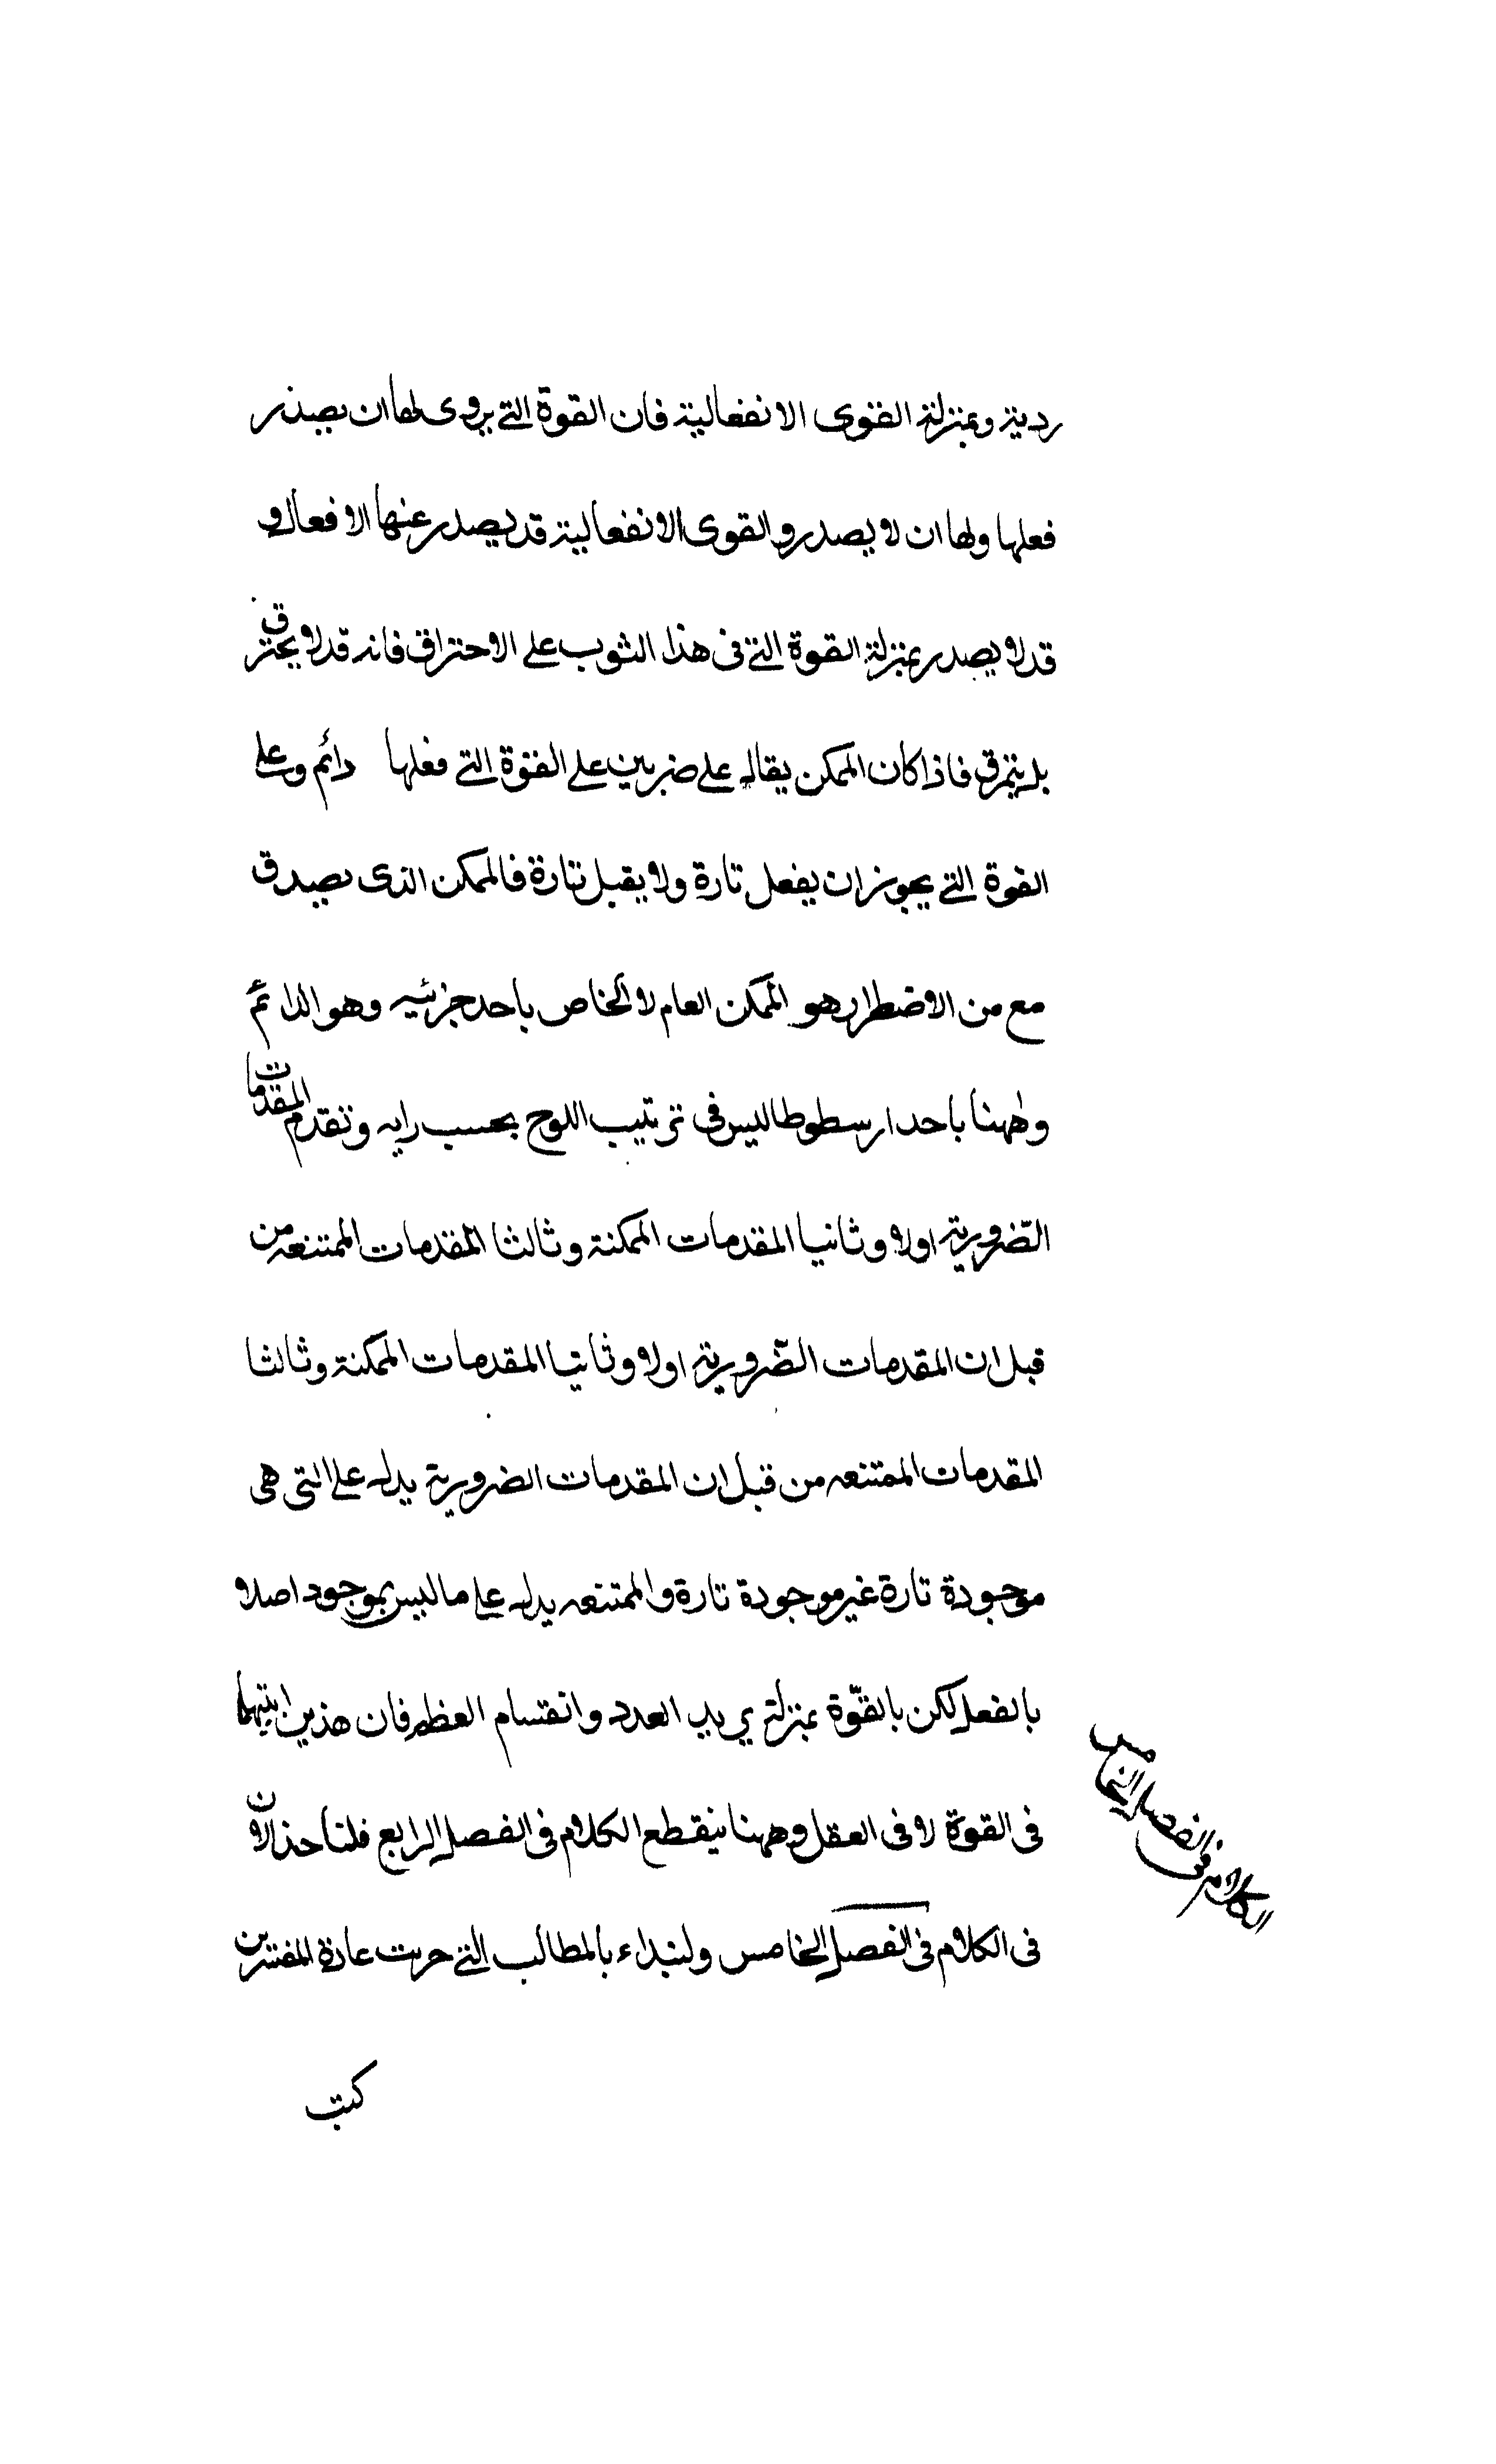 ردية وبمنزلة القوى الانفعالية فان القوة التى يروى لها ان يصدر
فعلها ولها ان لا يصدر والقوى الانفعالية قد يصدر عنها الافعال و
قد لا يصدر بمنزلة القوة التى فى هذا الثوب على الاحتراق فانه قد لا يحترق
بل يتمزق فاذا كان الممكن يقال على ضربين على القوة التى فعلها دائم وعلى
القوة التى يجوز ان يفعل تارة ولا يقبل تارة فالممكن الذى يصدق
مع من الاضطرار هو الممكن العام لا الخاص باحد جزئيه وهو الدائم
وههنا باحد ارسطوطاليس فى ترتيب اللوح بحسب رايه وتقدم المقدمات
الضّرورية اولا وثانيا المقدمات الممكنة وثالثا المقدمات الممتنعه من
قبل ان المقدمات الضّرورية اولا وثانيا المقدمات الممكنة وثالثا
المقدمات الممتنعه من قبل ان المقدمات الضرورية يدل على التى هى
موجودة تارة غير موجودة تارة والممتنعه يدل على ما ليس بموجود اصلا
بالفعل لكن بالقوّة بمنزلة العدد وانقسام العظم فان هذين
فى القوة لا فى العقل وههنا ينقطع الكلام فى الفصل الرابع فلناخذ الان
فى الكلام فى الفصل الخامس ولنبداء بالمطالب التى جرت عادة المفسرين
كتب
الكلام فى الفصل الخامس